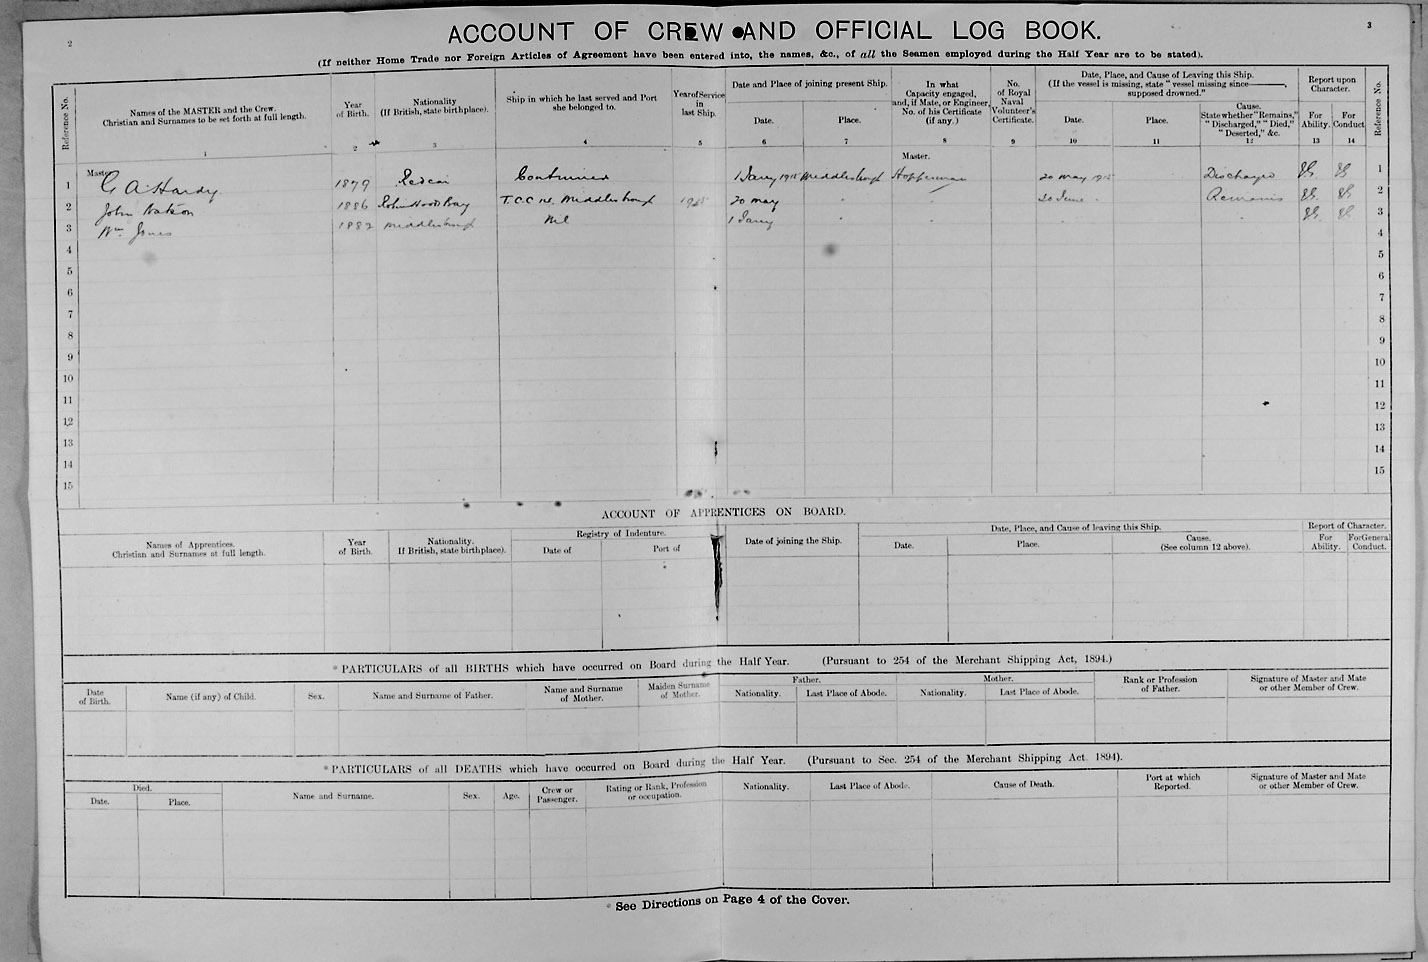 2
3
ACCOUNT OF CREW AND OFFICIAL LOG BOOK.
(If neither Home Trade nor Foreign Articles of Agreement have been entered into, the names, &c., of all the Seamen employed during the Half Year are to be stated).
Reference No.
Names of the MASTER and the Crew.
Christian and Surnames to be set forth at full length.
1
Year
of Birth.
2
Nationality
(If British, state birthplace).
3
Ship in which he last served and Port
she belonged to.
4
Year of Service
in
last Ship.
5
Date and Place of joining present Ship.
Date.
6
Place.
7
In what
Capacity engaged,
and, if Mate, or Engineer,
No. of his Certificate
(if any.)
8
No.
of Royal
Naval
Volunteer's
Certificate.
9
Date, Place, and Cause of Leaving this Ship.
(If the vessel is missing, state "vessel missing since———,
supposed drowned."
Date.
10
Place.
11
Cause.
State whether "Remains,"
"Discharged," "Died,"
"Deserted," &c.
12
Report upon
Character.
For
Ability.
13
For
Conduct
14
Reference No.
Master.
Master.
1 G A Hardy 1879 Redcar Continued 1 Jany 1915 Middlesbrough Hopperman 20 May 1915 Discharged VG VG 1
2 John Watson 1886 Robin Hood Bay T.C.C. Middlesbrough 1915 20 May " " 30 June " Remains VG VG 2
3 Wm Jones 1882 Middlesbrough Nil 1 Jany " " " " VG VG 3
4 4
5 5
6 6
7 7
8 8
9 9
10 10
11 11
12 12
13 13
14 14
15 15
ACCOUNT OF APPRENTICES ON BOARD.
Names of Apprentices.
Christian and Surnames at full length.
Year
of Birth.
Nationality.
If British, state birthplace).
Registry of Indenture.
Date of
Port of
Date of joining the Ship.
Date, Place, and Cause of leaving this Ship.
Date.
Place.
Cause.
(See column 12 above).
Report of Character.
For
Ability.
For General
Conduct.
* PARTICULARS of all BIRTHS which have occurred on Board during the Half Year. (Pursuant to 254 of the Merchant Shipping Act, 1894.)
Date
of Birth.
Name (if any) of Child.
Sex.
Name and Surname of Father.
Name and Surname
of Mother.
Maiden Surname
of Mother.
Father.
Nationality.
Last Place of Abode.
Mother.
Nationality.
Last Place of Abode.
Rank or Profession
of Father.
Signature of Master and Mate
or other Member of Crew.
* PARTICULARS of all DEATHS which have occurred on Board during the Half Year. (Pursuant to Sec. 254 of the Merchant Shipping Act. 1894).
Died.
Date.
Place.
Name and Surname.
Sex.
Age.
Crew or
Passenger.
Rating or Rank, Profession
or occupation.
Nationality.
Last Place of Abode.
Cause of Death.
Port at which
Reported.
Signature of Master and Mate
or other Member of Crew.
* See Directions on Page 4 of the Cover.